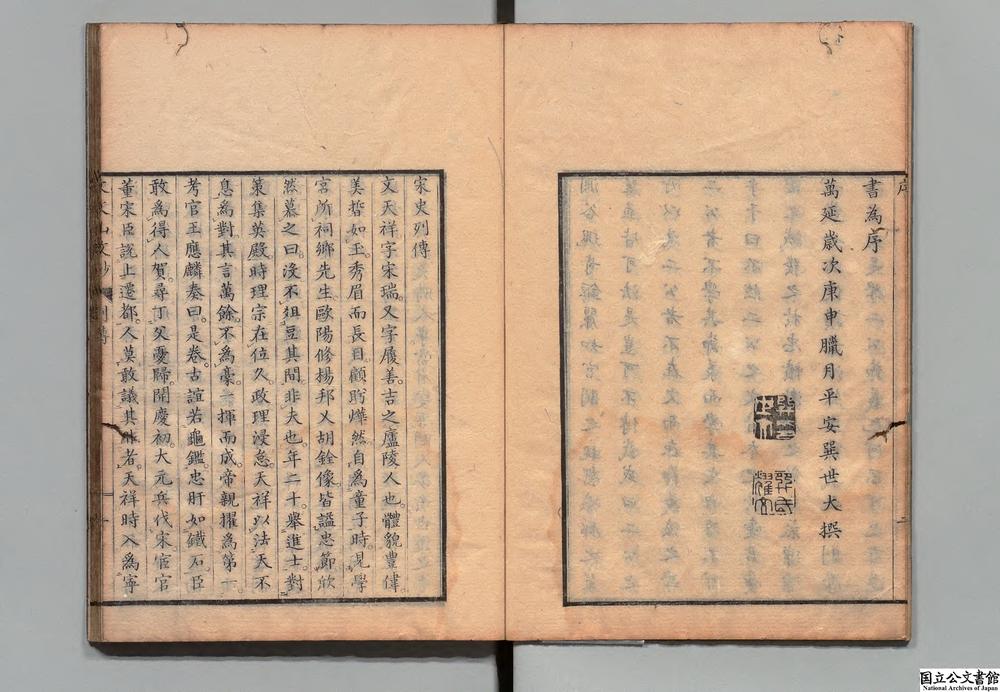 序
書為序
萬延歳次庚申臘月平安巽世大撰
宋史列傳
文天祥字宋瑞。又字履善。吉之廬陵人也。體貌豐偉。
美晳如玉。秀眉而長目。顧眄燁然。自爲童子時。見學
宮所祠鄉先生歐陽修楊邦乂胡銓像。皆諡忠節。欣
然慕之曰。沒不俎豆其間。非夫也。年二十舉進士。對
策集英殿。時理宗在位久。政理浸怠。天祥以法天不
息為對。其言萬餘。不爲稾。一揮而成。帝親擢為第一。
考官王應麟奏曰。是卷古誼若龜鑑。忠肝如鐵石。臣
敢為得人賀。尋丁父憂歸。開慶初。大元兵伐宋。宦官
董宋臣說上遷都。人莫敢議其非者。天祥時入為寧
文文山文鈔 列傳 一
国立公文書館
National Archives of Japan